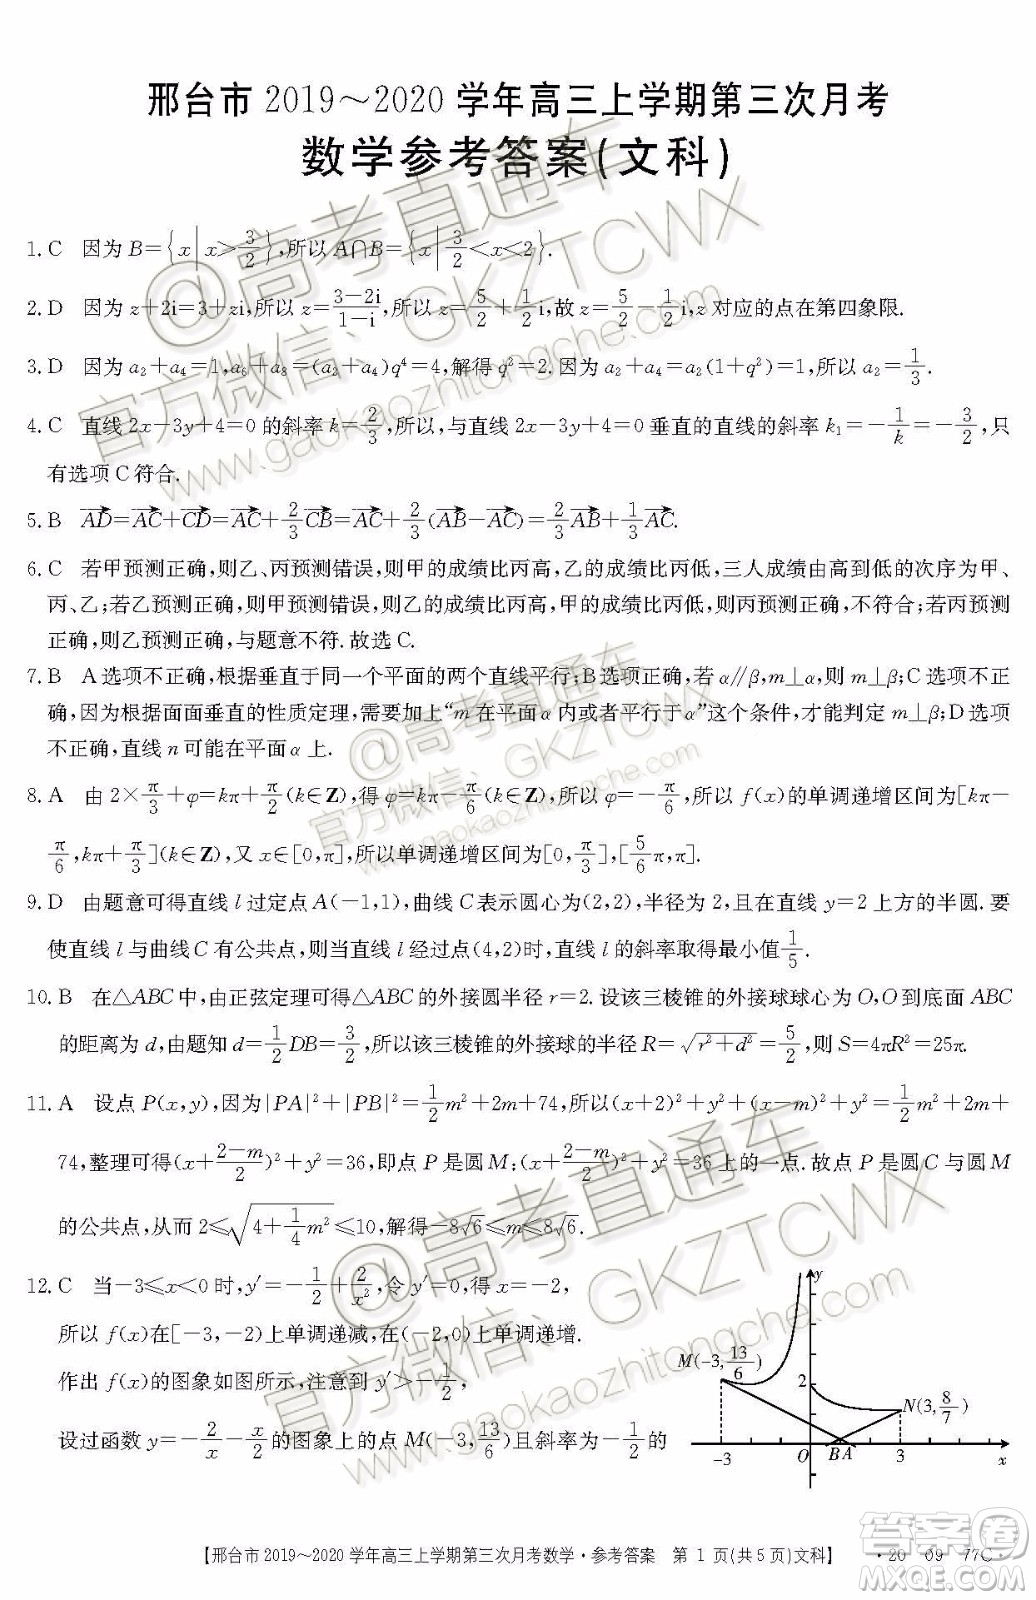 邢台市 2019～2020 学年高三上学期第三次月考
数学参考答案(文科)
1. C　因为 B={x|x>3/2},所以 A∩B={x|3/2<x<2}.
2. D　因为 z+2i=3+zi,所以 z=(3-2i)/(1-i),所以 z=5/2+1/2i,故 z̄=5/2-1/2i,z̄ 对应的点在第四象限.
3. D　因为 a₂+a₄=1,a₆+a₈=(a₂+a₄)q⁴=4,解得 q²=2.因为 a₂+a₄=a₂(1+q²)=1,所以 a₂=1/3.
4. C　直线 2x-3y+4=0 的斜率 k=2/3,所以,与直线 2x-3y+4=0 垂直的直线的斜率 k₁=-1/k=-3/2,只
有选项 C 符合.
5. B　AD=AC+CD=AC+2/3CB=AC+2/3(AB-AC)=2/3AB+1/3AC.
6. C　若甲预测正确,则乙、丙预测错误,则甲的成绩比丙高,乙的成绩比丙低,三人成绩由高到低的次序为甲、
丙、乙;若乙预测正确,则丙预测错误,则乙的成绩比丙高,甲的成绩比丙低,不符合;若丙预测
正确,则乙预测正确,与题意不符.故选 C.
7. B　A 选项不正确,根据垂直于同一个平面的两个直线平行;B 选项正确,若 α∥β,m⊥α,则 m⊥β;C 选项不正
确,因为根据面面垂直的性质定理,需要加上“m 在平面 α 内或者平行于 α”这个条件,才能判定 m⊥β;D 选项
不正确,直线 n 可能在平面 α 上.
8. A　由 2×π/3+φ=kπ+π/2(k∈Z),得 φ=kπ-π/6(k∈Z),所以 φ=-π/6,所以 f(x)的单调递增区间为[kπ-
π/6,kπ+π/3](k∈Z),又 x∈[0,π],所以单调递增区间为[0,π/3],[5/6π,π].
9. D　由题意可得直线 l 过定点 A(-1,1),曲线 C 表示圆心为(2,2),半径为 2,且在直线 y=2 上方的半圆.要
使直线 l 与曲线 C 有公共点,则当直线 l 经过点(4,2)时,直线 l 的斜率取得最小值1/5.
10. B　在△ABC 中,由正弦定理可得△ABC 的外接圆半径 r=2.设该三棱锥的外接球球心为 O,O 到底面 ABC
的距离为 d,由题知 d=1/2DB=3/2,所以该三棱锥的外接球的半径 R=√(r²+d²)=5/2,则 S=4πR²=25π.
11. A　设点 P(x,y),因为|PA|²+|PB|²=1/2m²+2m+74,所以(x+2)²+y²+(x-m)²+y²=1/2m²+2m+
74,整理可得(x+(2-m)/2)²+y²=36,即点 P 是圆 M:(x+(2-m)/2)²+y²=36 上的一点.故点 P 是圆 C 与圆 M
的公共点,从而 2≤√(4+1/4m²)≤10,解得-8√6≤m≤8√6.
12. C　当-3≤x<0 时,y′=-1/2+2/x²,令 y′=0,得 x=-2,
所以 f(x)在[-3,-2)上单调递减,在(-2,0)上单调递增.
作出 f(x)的图象如图所示,注意到 y′>-1/2,
设过函数 y=-2/x-x/2的图象上的点 M(-3,13/6)且斜率为-1/2的
y
M(-3,13/6)
2
N(3,8/7)
-3 O B A 3 x
【邢台市 2019～2020 学年高三上学期第三次月考数学·参考答案　第 1 页(共 5 页)文科】
·20-09-77C·
@高考直通车
官方微信:GKZTCWX
www.gaokaozhitongche.com
@高考直通车
官方微信:GKZTCWX
www.gaokaozhitongche.com
@高考直通车
官方微信:GKZTCWX
www.gaokaozhitongche.com